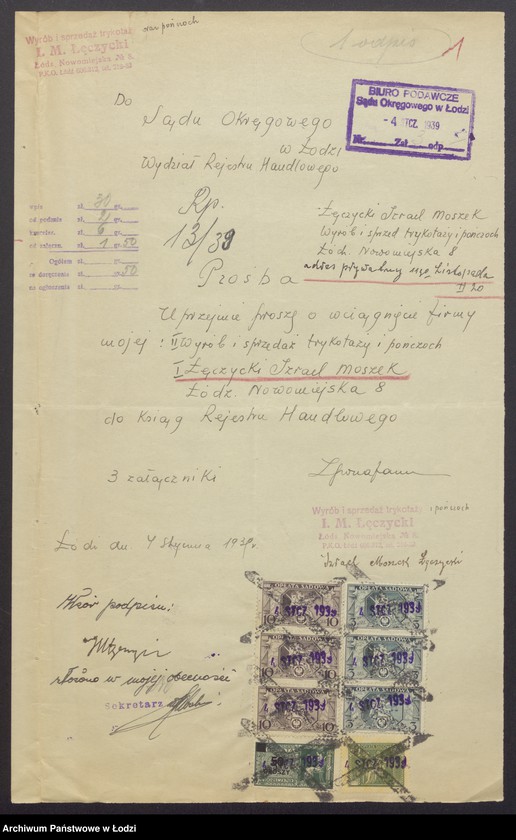 oraz pończoch
Wyrób i sprzedaż trykotaży
I. M. Łęczycki
Łódź, Nowomiejska № 8
1 odpis
1
BIURO PODAWCZE
Sądu Okręgowego w Łodzi
- 4 STCZ. 1939
Nr. Zał. odp.
Do
Sądu Okręgowego
w Łodzi
Wydział Rejestru Handlowego
Rp.
13/39
zł. 30 gr.
od podania zł. 2 gr.
zł. 6 gr.
zł. 1 gr. 50
Ogółem zł. gr.
za doręczenie zł. gr. 50
na ogłoszenia zł. gr.
Łęczycki Izrael Moszek
Wyrób i sprzed trykotaży i pończoch
Łódź. Nowomiejska 8
adres prywatny 11go Listopada
20
Prośba
Uprzejmie proszę o wciągnięcie firmy
mojej: II Wyrób i sprzedaż trykotaży i pończoch
I Łęczycki Izrael Moszek
Łódź. Nowomiejska 8
do ksiąg Rejestru Handlowego
3 załączniki
Wyrób i sprzedaż trykotaży i pończoch
I. M. Łęczycki
Łódź, Nowomiejska № 8
Izrael Moszek Łęczycki
Łódź dn 4 Stycznia 1939r.
Wzór podpisu:
złożono w mojej obecności
Sekretarz
OPŁATA SĄDOWA OPŁATA SĄDOWA
4 STCZ 1939 4 STCZ 1939
10 10 3 3
4 STCZ 1939 4 STCZ 1939
10 10 3 3
4 STCZ 1939 4 STCZ 1939
10 10 3 3
50
GROSZY
4 STCZ 1939 4 STCZ 1939
Archiwum Państwowe w Łodzi